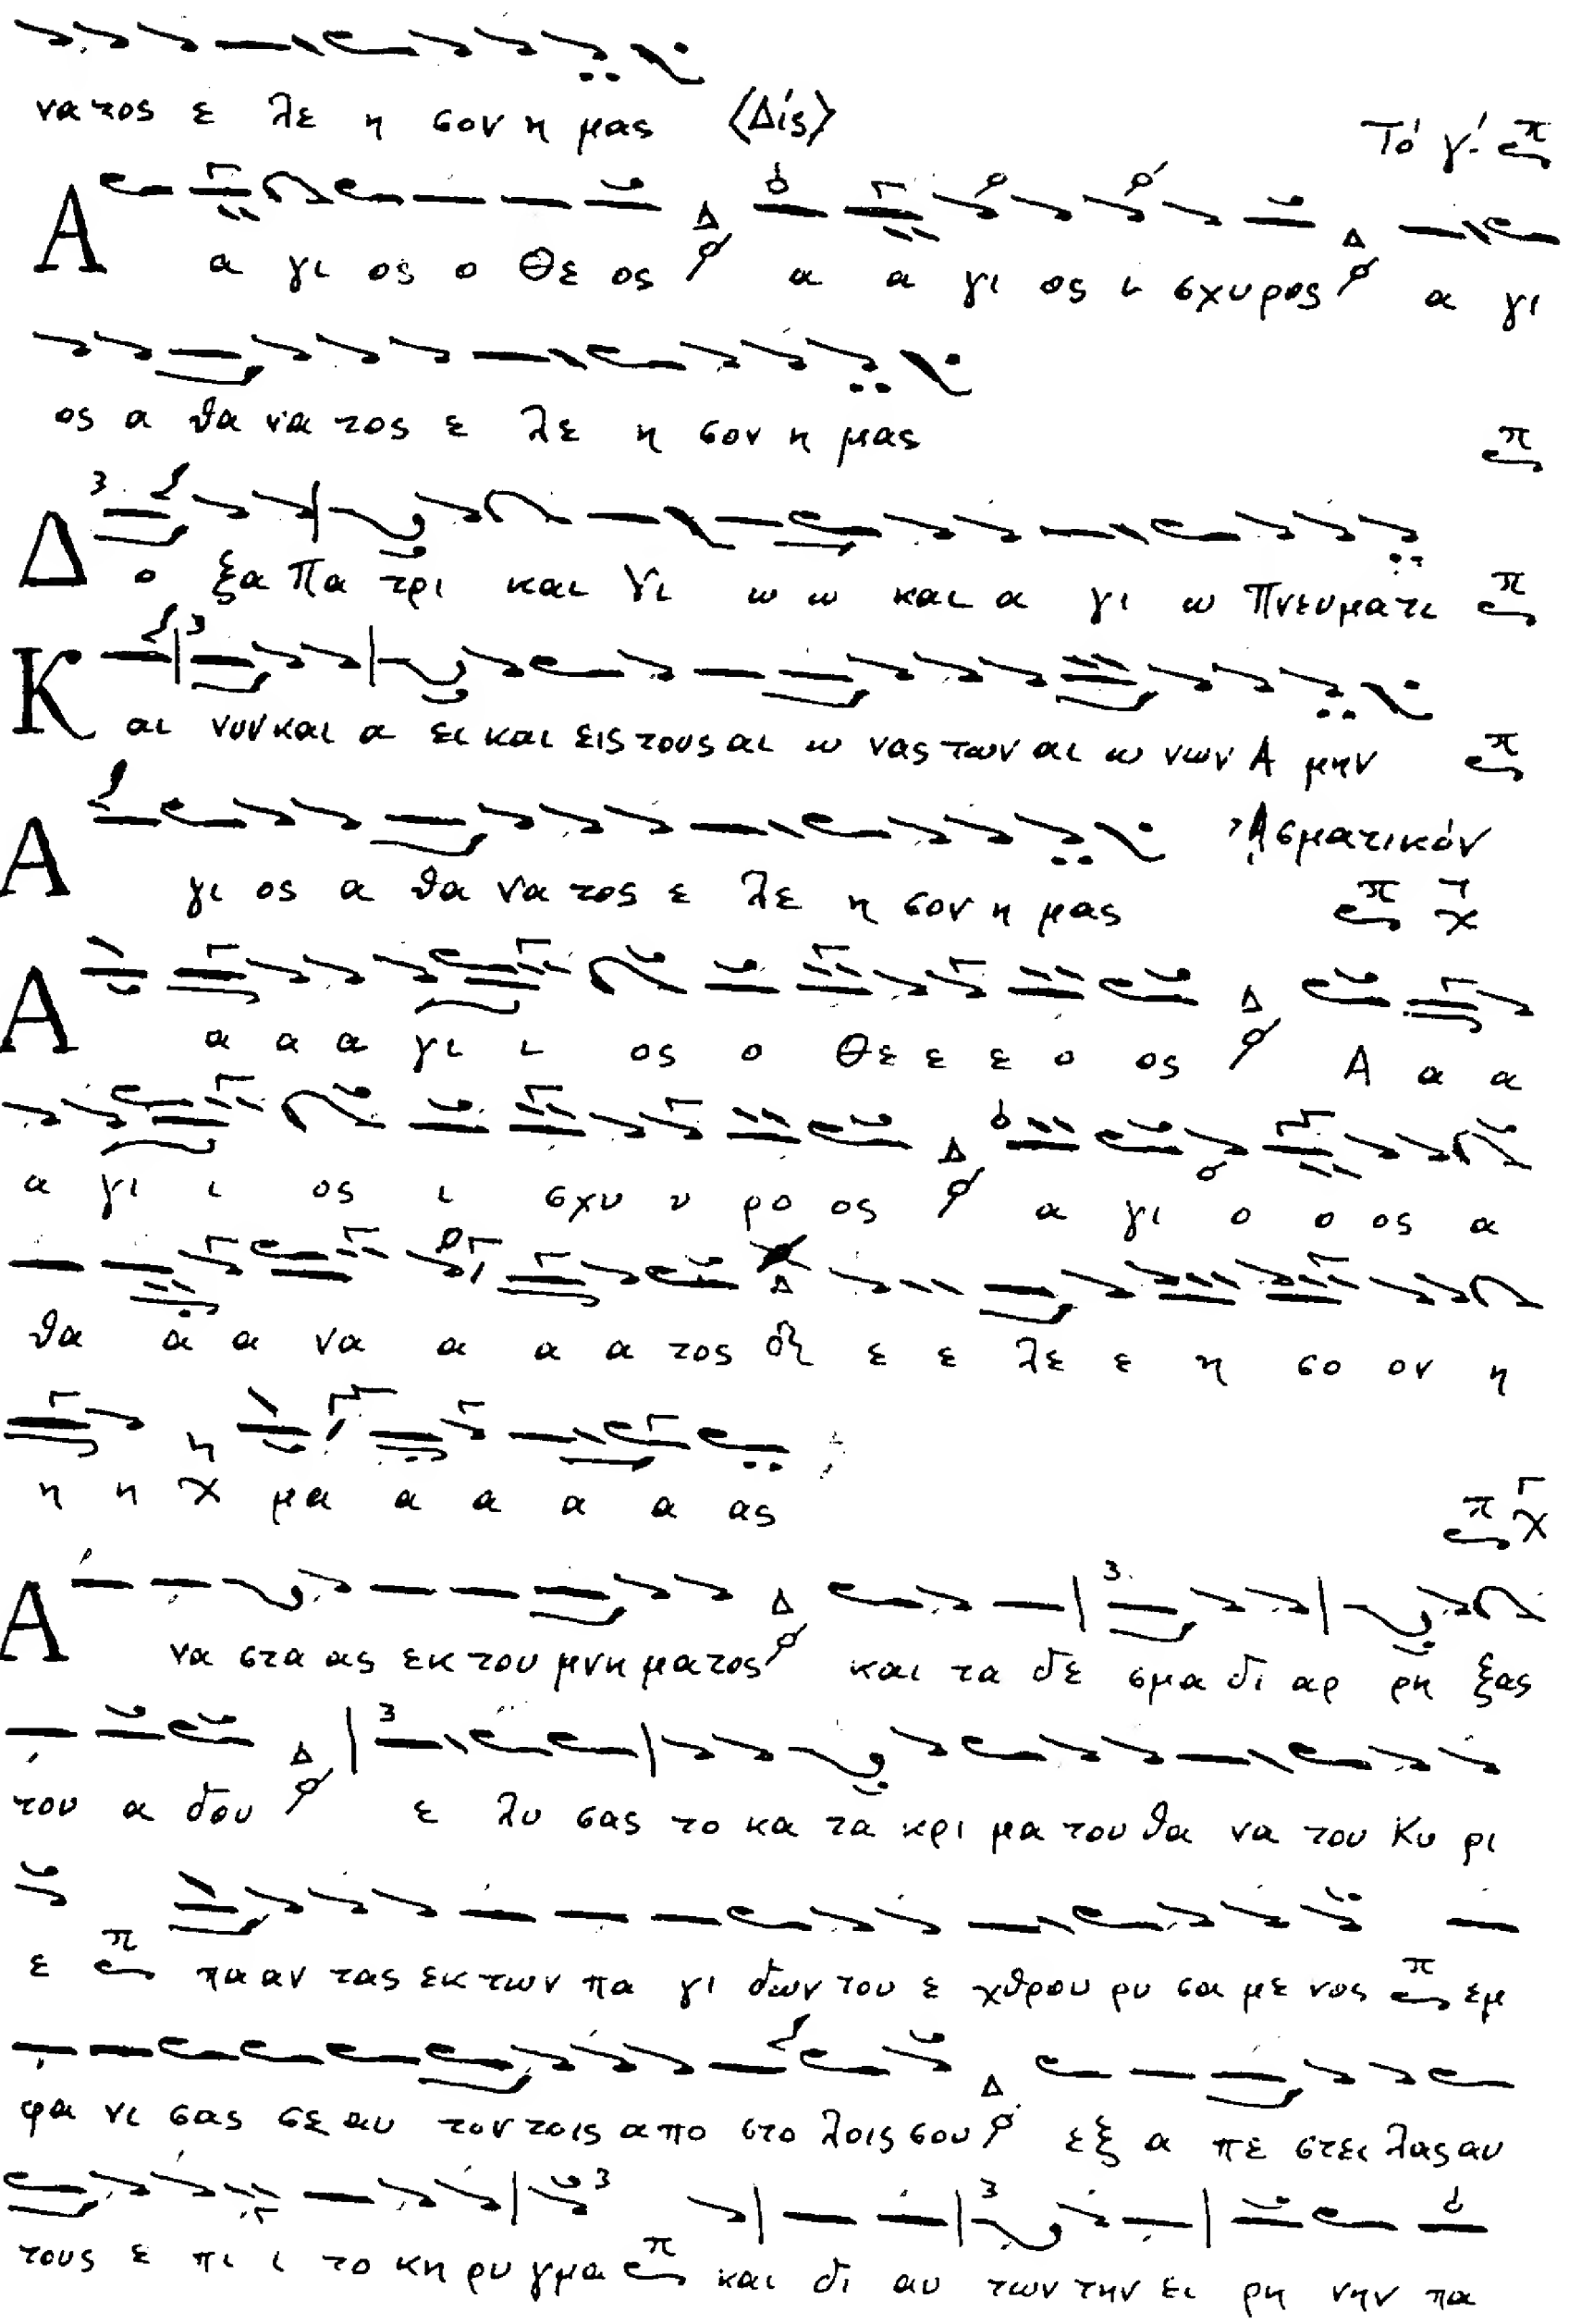 να τος ε λε η σον η μας ⟨Δίς⟩
Τό γ΄. π
Α α γι ος ο Θε ος Δ α α γι ος ι σχυρος Δ α γι
ος α θα να τος ε λε η σον η μας π
Δ ο ξα Πα τρι και Υι ω ω και α γι ω Πνευματι π
Κ αι νυν και α ει και εις τους αι ω νας των αι ω νων Α μην π
Α γι ος α θα να τος ε λε η σον η μας π
Ἀσματικόν
Α α α α γι ι ος ο Θε ε ε ο ος Δ Α α α
α γι ι ος ι σχυ υ ρο ος Δ α γι ο ο ος α
θα α α να α α α τος Δ ε ε λε ε η σο ον η
η η μα α α α α ας π
Α να στα ας εκ του μνη ματος Δ και τα δε σμα δι αρ ρη ξας
του α δου Δ ε λυ σας το κα τα κρι μα του θα να του Κυ ρι
ε π πα αν τας εκ των πα γι δων του ε χθρου ρυ σα με νος π εμ
φα νι σας σε αυ τον τοις απο στο λοις σου Δ εξ α πε στει λας αυ
τους ε πι ι το κη ρυ γμα π και δι αυ των την ει ρη νην πα